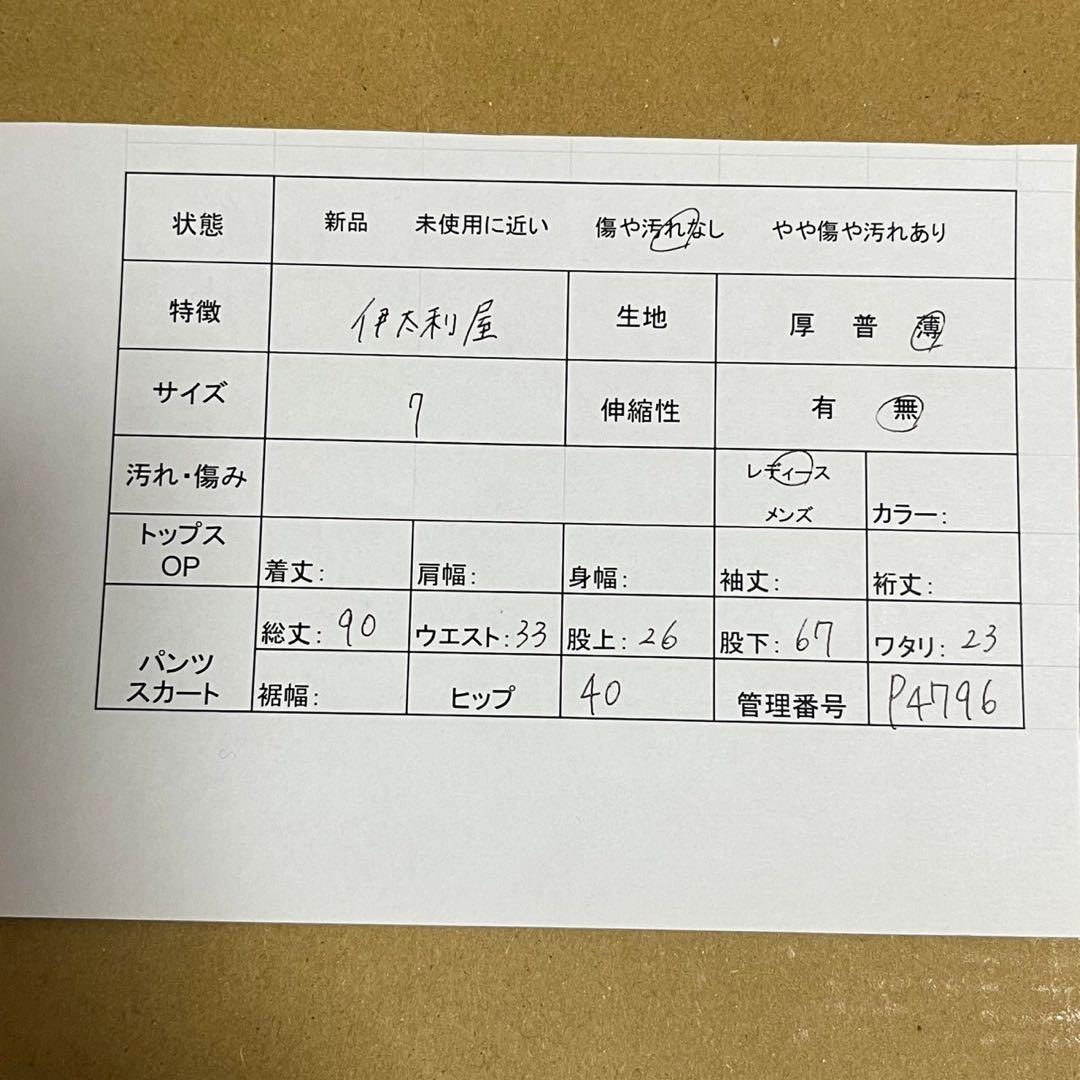 状態 新品 未使用に近い 傷や汚れなし やや傷や汚れあり
特徴 伊太利屋 生地 厚 普 薄
サイズ 7 伸縮性 有 無
汚れ・傷み レディース
メンズ カラー:
トップス
OP 着丈: 肩幅: 身幅: 袖丈: 裄丈:
総丈: 90 ウエスト: 33 股上: 26 股下: 67 ワタリ: 23
パンツ
スカート 裾幅: ヒップ 40 管理番号 P4796